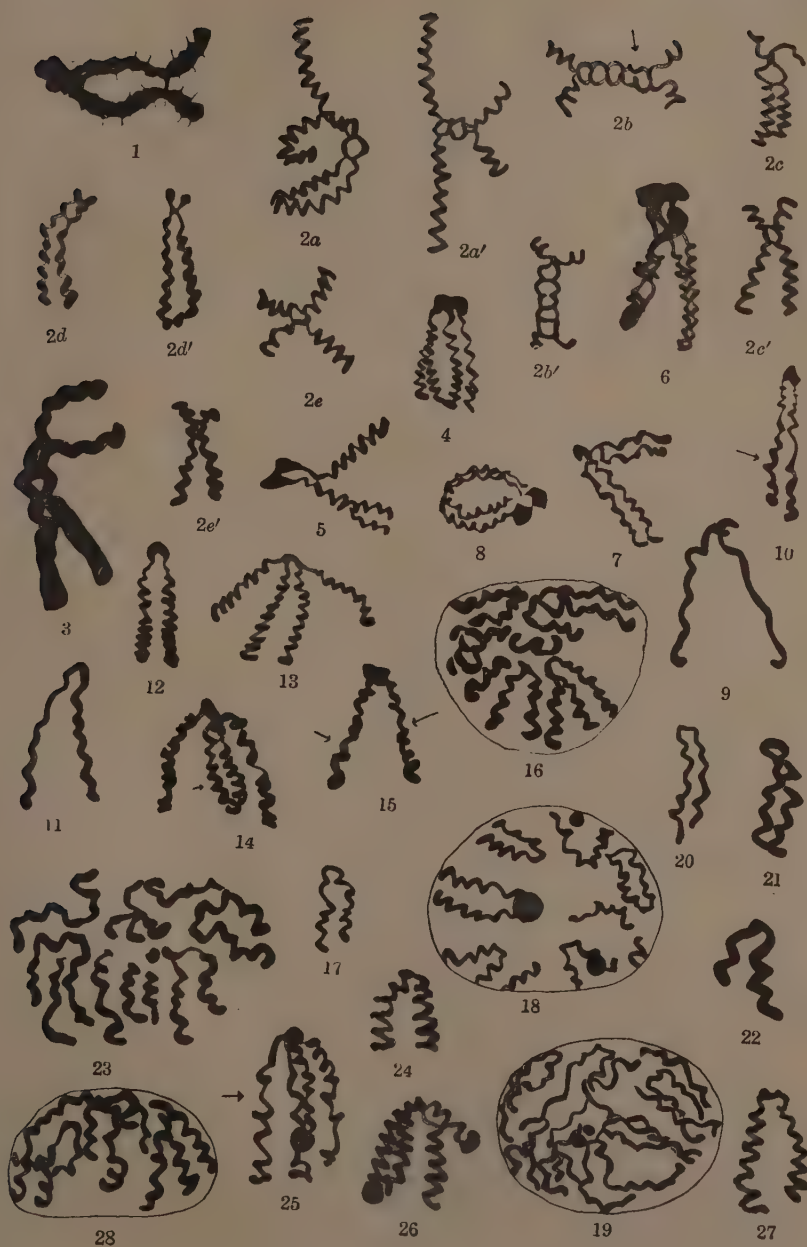 1
2a
2a'
2b
2c
2d
2d'
2e
2b'
6
2c'
4
3
2e'
5
8
7
10
12
13
16
9
11
14
15
20
21
17
18
22
23
24
25
26
19
27
28